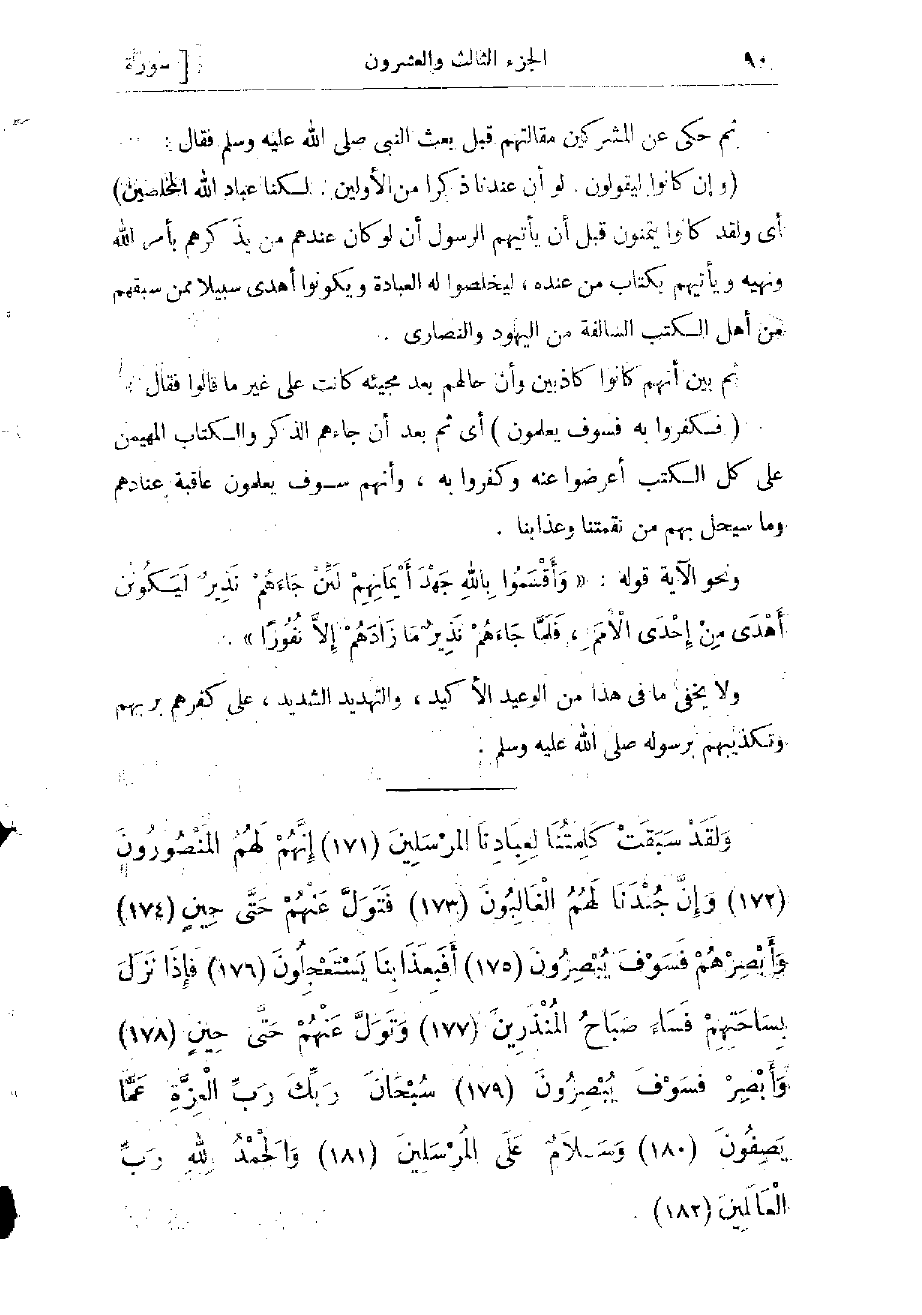 ٩٠ الجزء الثالث والعشرون [ سورة
ثم حكى عن المشركين مقالتهم قبل بعث النبى صلى الله عليه وسلم فقال :
( وإن كانوا ليقولون . لو أن عندنا ذكرا من الأولين . لكنا عباد الله المخلصين )
أى ولقد كانوا يتمنون قبل أن يأتيهم الرسول أن لو كان عندهم من يذكرهم بأمر الله
ونهيه ويأتيهم بكتاب من عنده ، ليخلصوا له العبادة ويكونوا أهدى سبيلا ممن سبقهم
من أهل الكتب السالفة من اليهود والنصارى .
ثم بين أنهم كانوا كاذبين وأن حالهم بعد مجيئه كانت على غير ما قالوا فقال :
( فكفروا به فسوف يعلمون ) أى ثم بعد أن جاءهم الذكر والكتاب المهيمن
على كل الكتب أعرضوا عنه وكفروا به ، وأنهم سوف يعلمون عاقبة عنادهم
وما سيحل بهم من نقمتنا وعذابنا .
ونحو الآية قوله : « وَأَقْسَمُوا بِاللهِ جَهْدَ أَيْمَانِهِمْ لَئِنْ جَاءَهُمْ نَذِيرٌ لَيَكُونُنَّ
أَهْدَى مِنْ إِحْدَى الْأُمَمِ ، فَلَمَّا جَاءَهُمْ نَذِيرٌ مَا زَادَهُمْ إِلاَّ نُفُورًا » .
ولا يخفى ما فى هذا من الوعيد الأكيد ، والتهديد الشديد ، على كفرهم بربهم
وتكذيبهم برسوله صلى الله عليه وسلم .
وَلَقَدْ سَبَقَتْ كَلِمَتُنَا لِعِبَادِنَا المُرْسَلِينَ (١٧١) إِنَّهُمْ لَهُمُ المَنْصُورُونَ
(١٧٢) وَإِنَّ جُنْدَنَا لَهُمُ الْغَالِبُونَ (١٧٣) فَتَوَلَّ عَنْهُمْ حَتَّى حِينٍ (١٧٤)
وَأَبْصِرْهُمْ فَسَوْفَ يُبْصِرُونَ (١٧٥) أَفَبِعَذَابِنَا يَسْتَعْجِلُونَ (١٧٦) فَإِذَا نَزَلَ
بِسَاحَتِهِمْ فَسَاءَ صَبَاحُ المُنْذَرِينَ (١٧٧) وَتَوَلَّ عَنْهُمْ حَتَّى حِينٍ (١٧٨)
وَأَبْصِرْ فَسَوْفَ يُبْصِرُونَ (١٧٩) سُبْحَانَ رَبِّكَ رَبِّ الْعِزَّةِ عَمَّا
يَصِفُونَ (١٨٠) وَسَلاَمٌ عَلَى المُرْسَلِينَ (١٨١) وَالْحَمْدُ لِلهِ رَبِّ
الْعَالَمِينَ (١٨٢) .